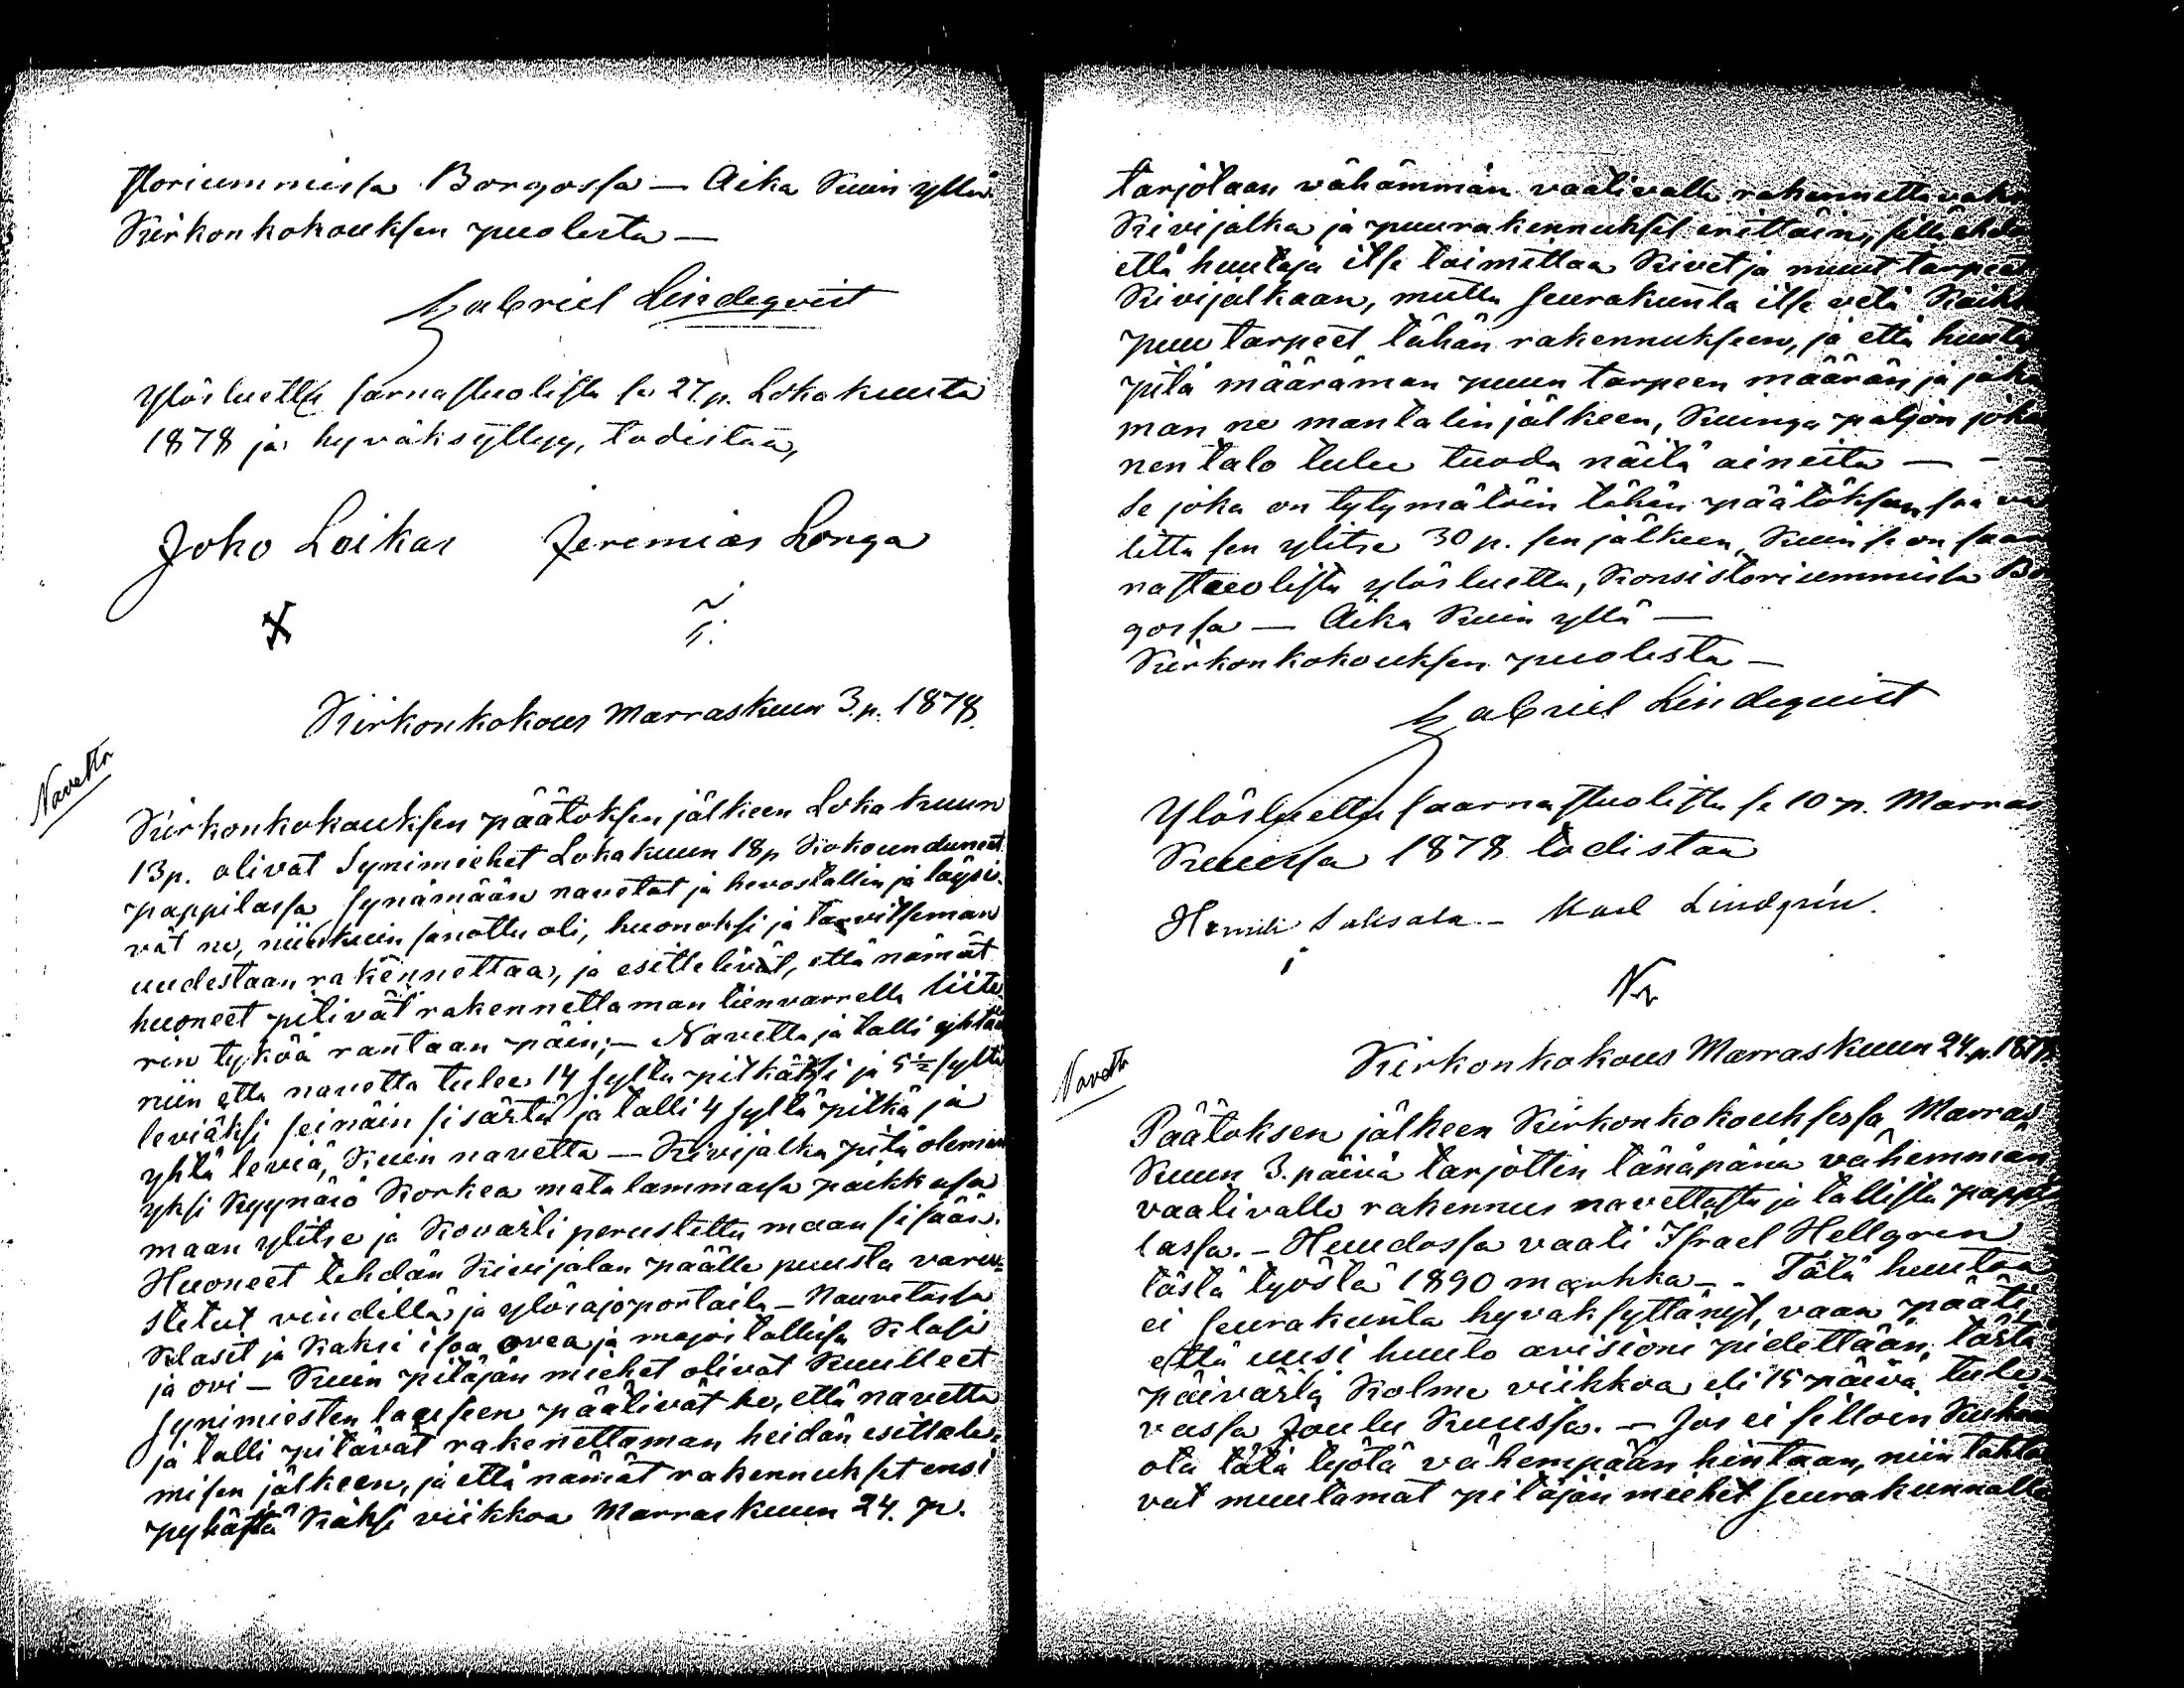 storiummissa Borgossa — Aika kuin yllä
Kirkonkokouksen puolesta —
Gabriel Lindeqvist
Ylösluettu sarnastuolista se 27 p. Lokakuuta
1878 ja hyväksyttyy, todistaa,
Joho Loikas Jeremias Longa
Kirkonkokous Marraskuun 3. p. 1878.
Navetta
Kirkonkokouksen päätoksen jälkeen Loka kuun
13 p. olivat Synimiehet Lokakuun 18 p kokounduneet
pappilassa synämään navetat ja hevostallin ja läysi-
vät ne, niinkuin sanottu oli, huonoksi ja tarvitseman
uudestaan rakennettaa, ja esittelivät, että nämät
huoneet pitivät rakennettaman tienvarrella liite
rin tyköä rantaan päin; — Navetta ja talli yhtää
niin että navetta tulee 14 syltä pitkäksi ja 5½ syltä
leviäksi seinäin sisästä ja talli 4 syltä pitkä ja
yhtä leviä, kuin navetta — Kivijalka pitä oleman
yksi kyynärö korkea matalammassa paikkasa
maan ylitse ja kovasti perustettu maan sisään.
Huoneet tehdän kivijalan päälle puusta varu-
stetut vindillä ja ylösajoportaila — Nauvetassa
klasit ja kaksi isoa ovea ja mojoi tallissa klasi
ja ovi — Kuin pitäjän miehet olivat kuulleet
synimiesten lauseen päätivät he, että navetta
ja talli pitävät rakenettaman heidän esittele-
misen jälkeen, ja että nämät rakennukset ensi
pyhästä kaksi viikkoa Marraskuun 24. p.
tarjotaan vähämmän vaativalle rakennettavaksi
Kivijalka ja puurakennukset erittäin, sillä
että huutaja itse toimittaa kivet ja muut tarpeet
Kivijalkaan, mutta seurakunta itse vetä kaikki
puu tarpeet tähän rakennukseen, ja että huutaja
pitä määrämän puun tarpeen määrän ja jaka
man ne mantalin jälkeen, kuinga paljon joka
nen talo tulee tuoda näitä aineita — — —
Se joka on tytymätöin tähän päätöksen saa va
litta sen ylitse 30 p. sen jälkeen, kuin se on saar
nastuolista ylösluettu, Konsistoriummissa Bor
gossa — Aika kuin yllä —
Kirkonkokouksen puolesta —
Gabriel Lindeqvist
Ylösluettu saarnastuolista se 10 p. Marras
Kuussa 1878 todistaa
Saksala — Karl Lindgrén.
Kirkonkokous Marraskuun 24. p. 1878.
Navetta
Päätoksen jälkeen Kirkonkokouksessa Marras
Kuun 3. päivä tarjottin tänäpänä vähemmän
vaativalle rakennus navettasta ja tallista pappi
lassa. — Huudossa vaati Israel Hellgren
tästä työstä 1890 markka — . Tätä huutoa
ei seurakunta hyväksyttänyt, vaan pääti,
että uusi huuto avisioni pidettään tästä
päivästä kolme viikkoa eli 15 päivä tule-
vassa Joulu Kuussa. — Jos ei silloin kukan
ota tätä työtä vähempään hintaan, niin tahto
vat muutamat pitäjän miehet seurakunnalle